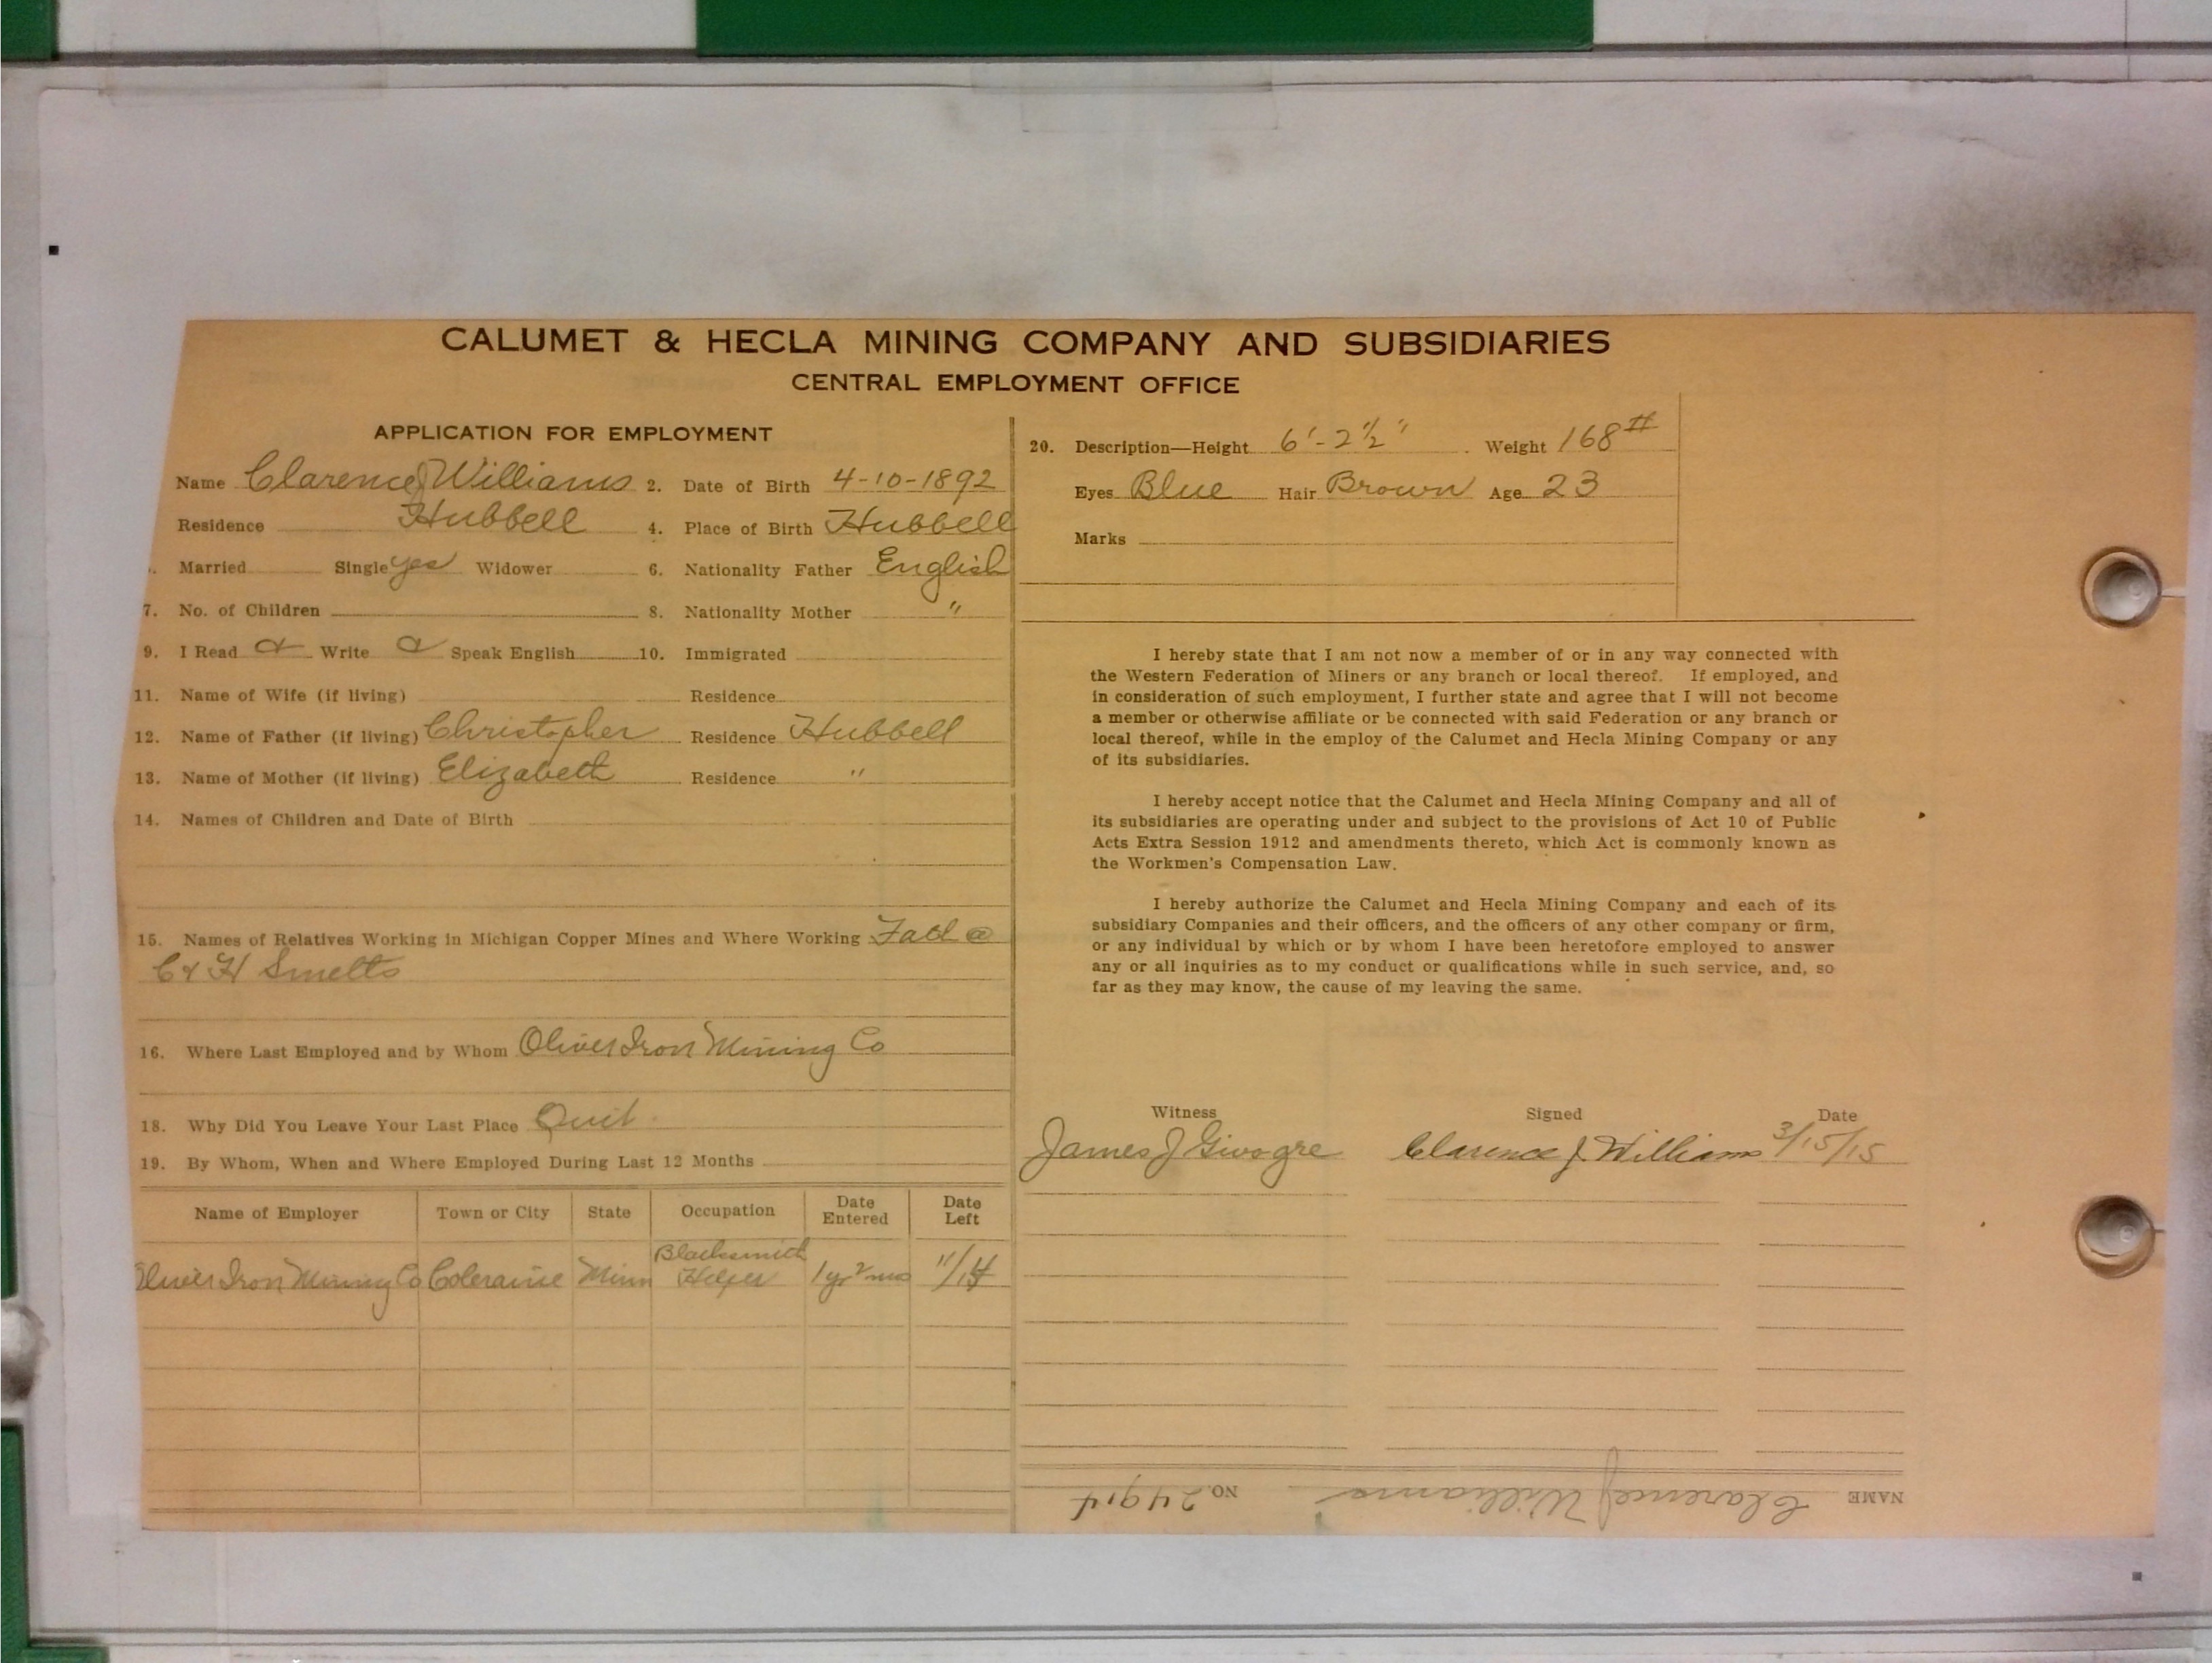 CALUMET & HECLA MINING COMPANY AND SUBSIDIARIES
CENTRAL EMPLOYMENT OFFICE
APPLICATION FOR EMPLOYMENT
Name Clarence J Williams 2. Date of Birth 4-10-1892
Residence Hubbell 4. Place of Birth Hubbell
Married Single yes Widower 6. Nationality Father English
7. No. of Children 8. Nationality Mother "
9. I Read & Write & Speak English 10. Immigrated
11. Name of Wife (if living) Residence
12. Name of Father (if living) Christopher Residence Hubbell
13. Name of Mother (if living) Elizabeth Residence "
14. Names of Children and Date of Birth
15. Names of Relatives Working in Michigan Copper Mines and Where Working @
C & H Smelts
16. Where Last Employed and by Whom Oliver Iron Mining Co
18. Why Did You Leave Your Last Place Quit
19. By Whom, When and Where Employed During Last 12 Months
Name of Employer Town or City State Occupation Date Entered Date Left
Oliver Iron Mining Co Coleraine Minn Blacksmith Helper 1 yr 2 mo 11/14
20. Description—Height 6'-2½" Weight 168#
Eyes Blue Hair Brown Age 23
Marks
I hereby state that I am not now a member of or in any way connected with
the Western Federation of Miners or any branch or local thereof. If employed, and
in consideration of such employment, I further state and agree that I will not become
a member or otherwise affiliate or be connected with said Federation or any branch or
local thereof, while in the employ of the Calumet and Hecla Mining Company or any
of its subsidiaries.
I hereby accept notice that the Calumet and Hecla Mining Company and all of
its subsidiaries are operating under and subject to the provisions of Act 10 of Public
Acts Extra Session 1912 and amendments thereto, which Act is commonly known as
the Workmen's Compensation Law.
I hereby authorize the Calumet and Hecla Mining Company and each of its
subsidiary Companies and their officers, and the officers of any other company or firm,
or any individual by which or by whom I have been heretofore employed to answer
any or all inquiries as to my conduct or qualifications while in such service, and, so
far as they may know, the cause of my leaving the same.
Witness Signed Date
James J Clarence J Williams 3/15/15
NAME Clarence J Williams NO. 24914